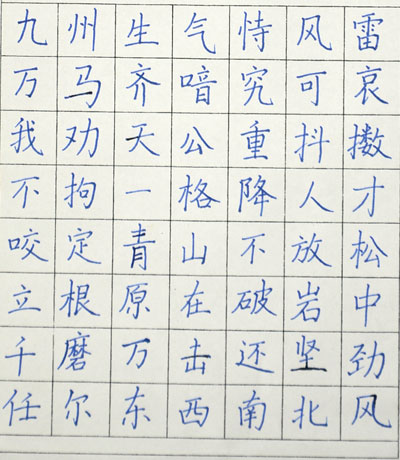 九州生气恃风雷
万马齐喑究可哀
我劝天公重抖擞
不拘一格降人才
咬定青山不放松
立根原在破岩中
千磨万击还坚劲
任尔东西南北风